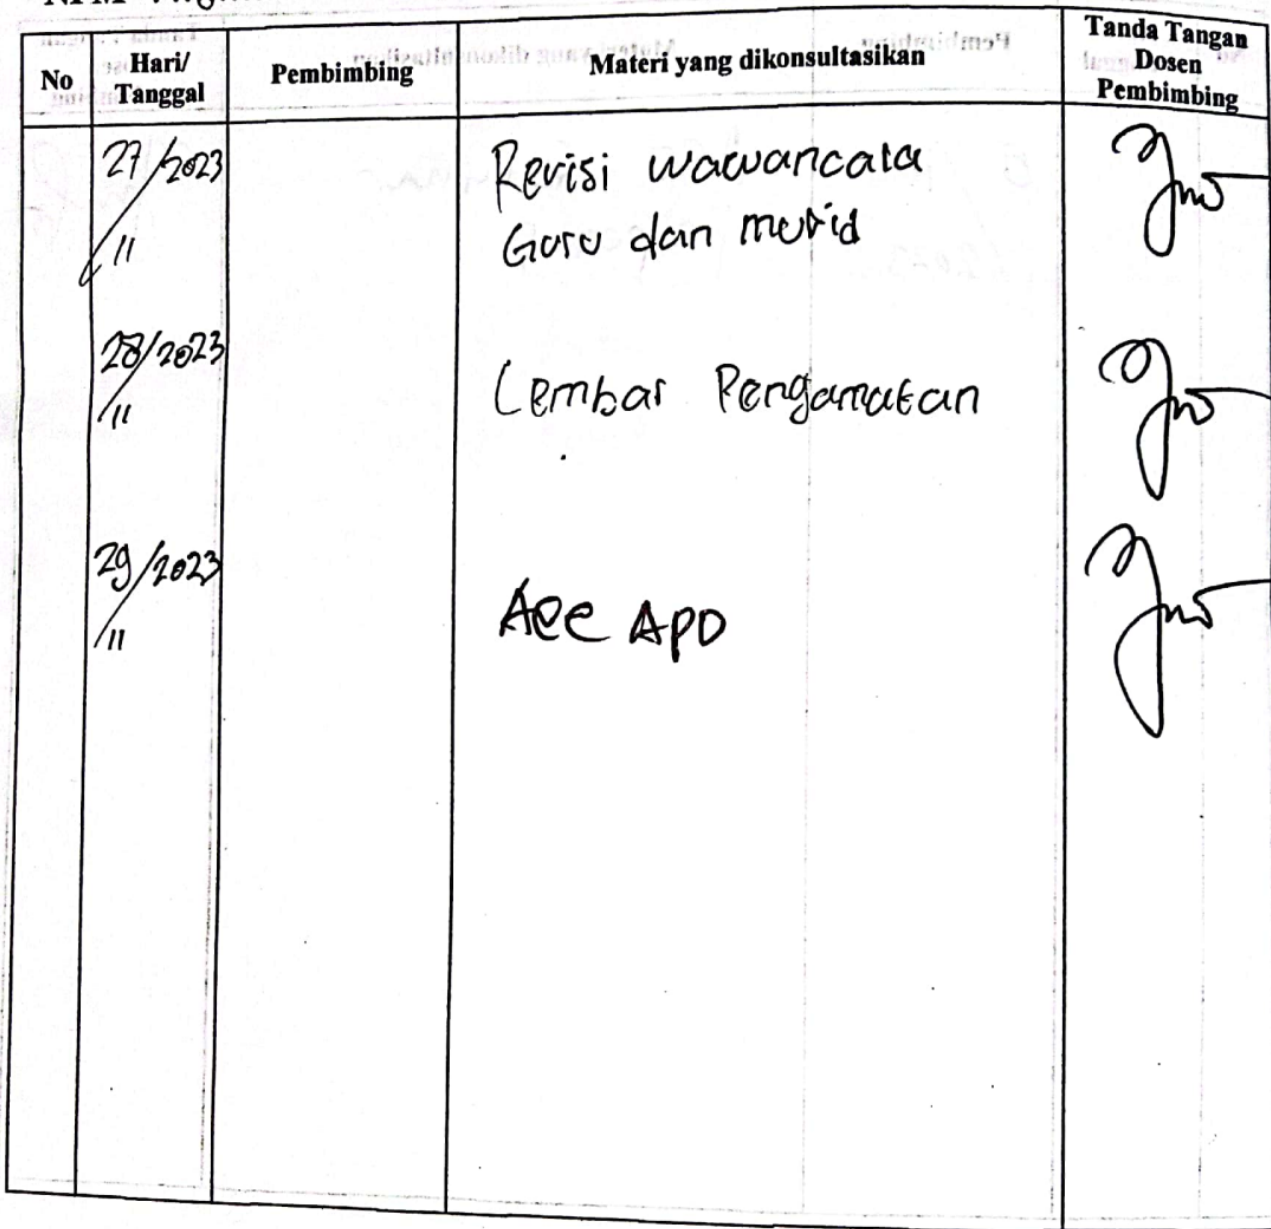 No
Hari/
Tanggal
Pembimbing
Materi yang dikonsultasikan
Tanda Tangan
Dosen
Pembimbing
27/2023
/11
Revisi wawancara
Guru dan murid
28/2023
/11
Lembar Pengamatan
29/2023
/11
Acc APD